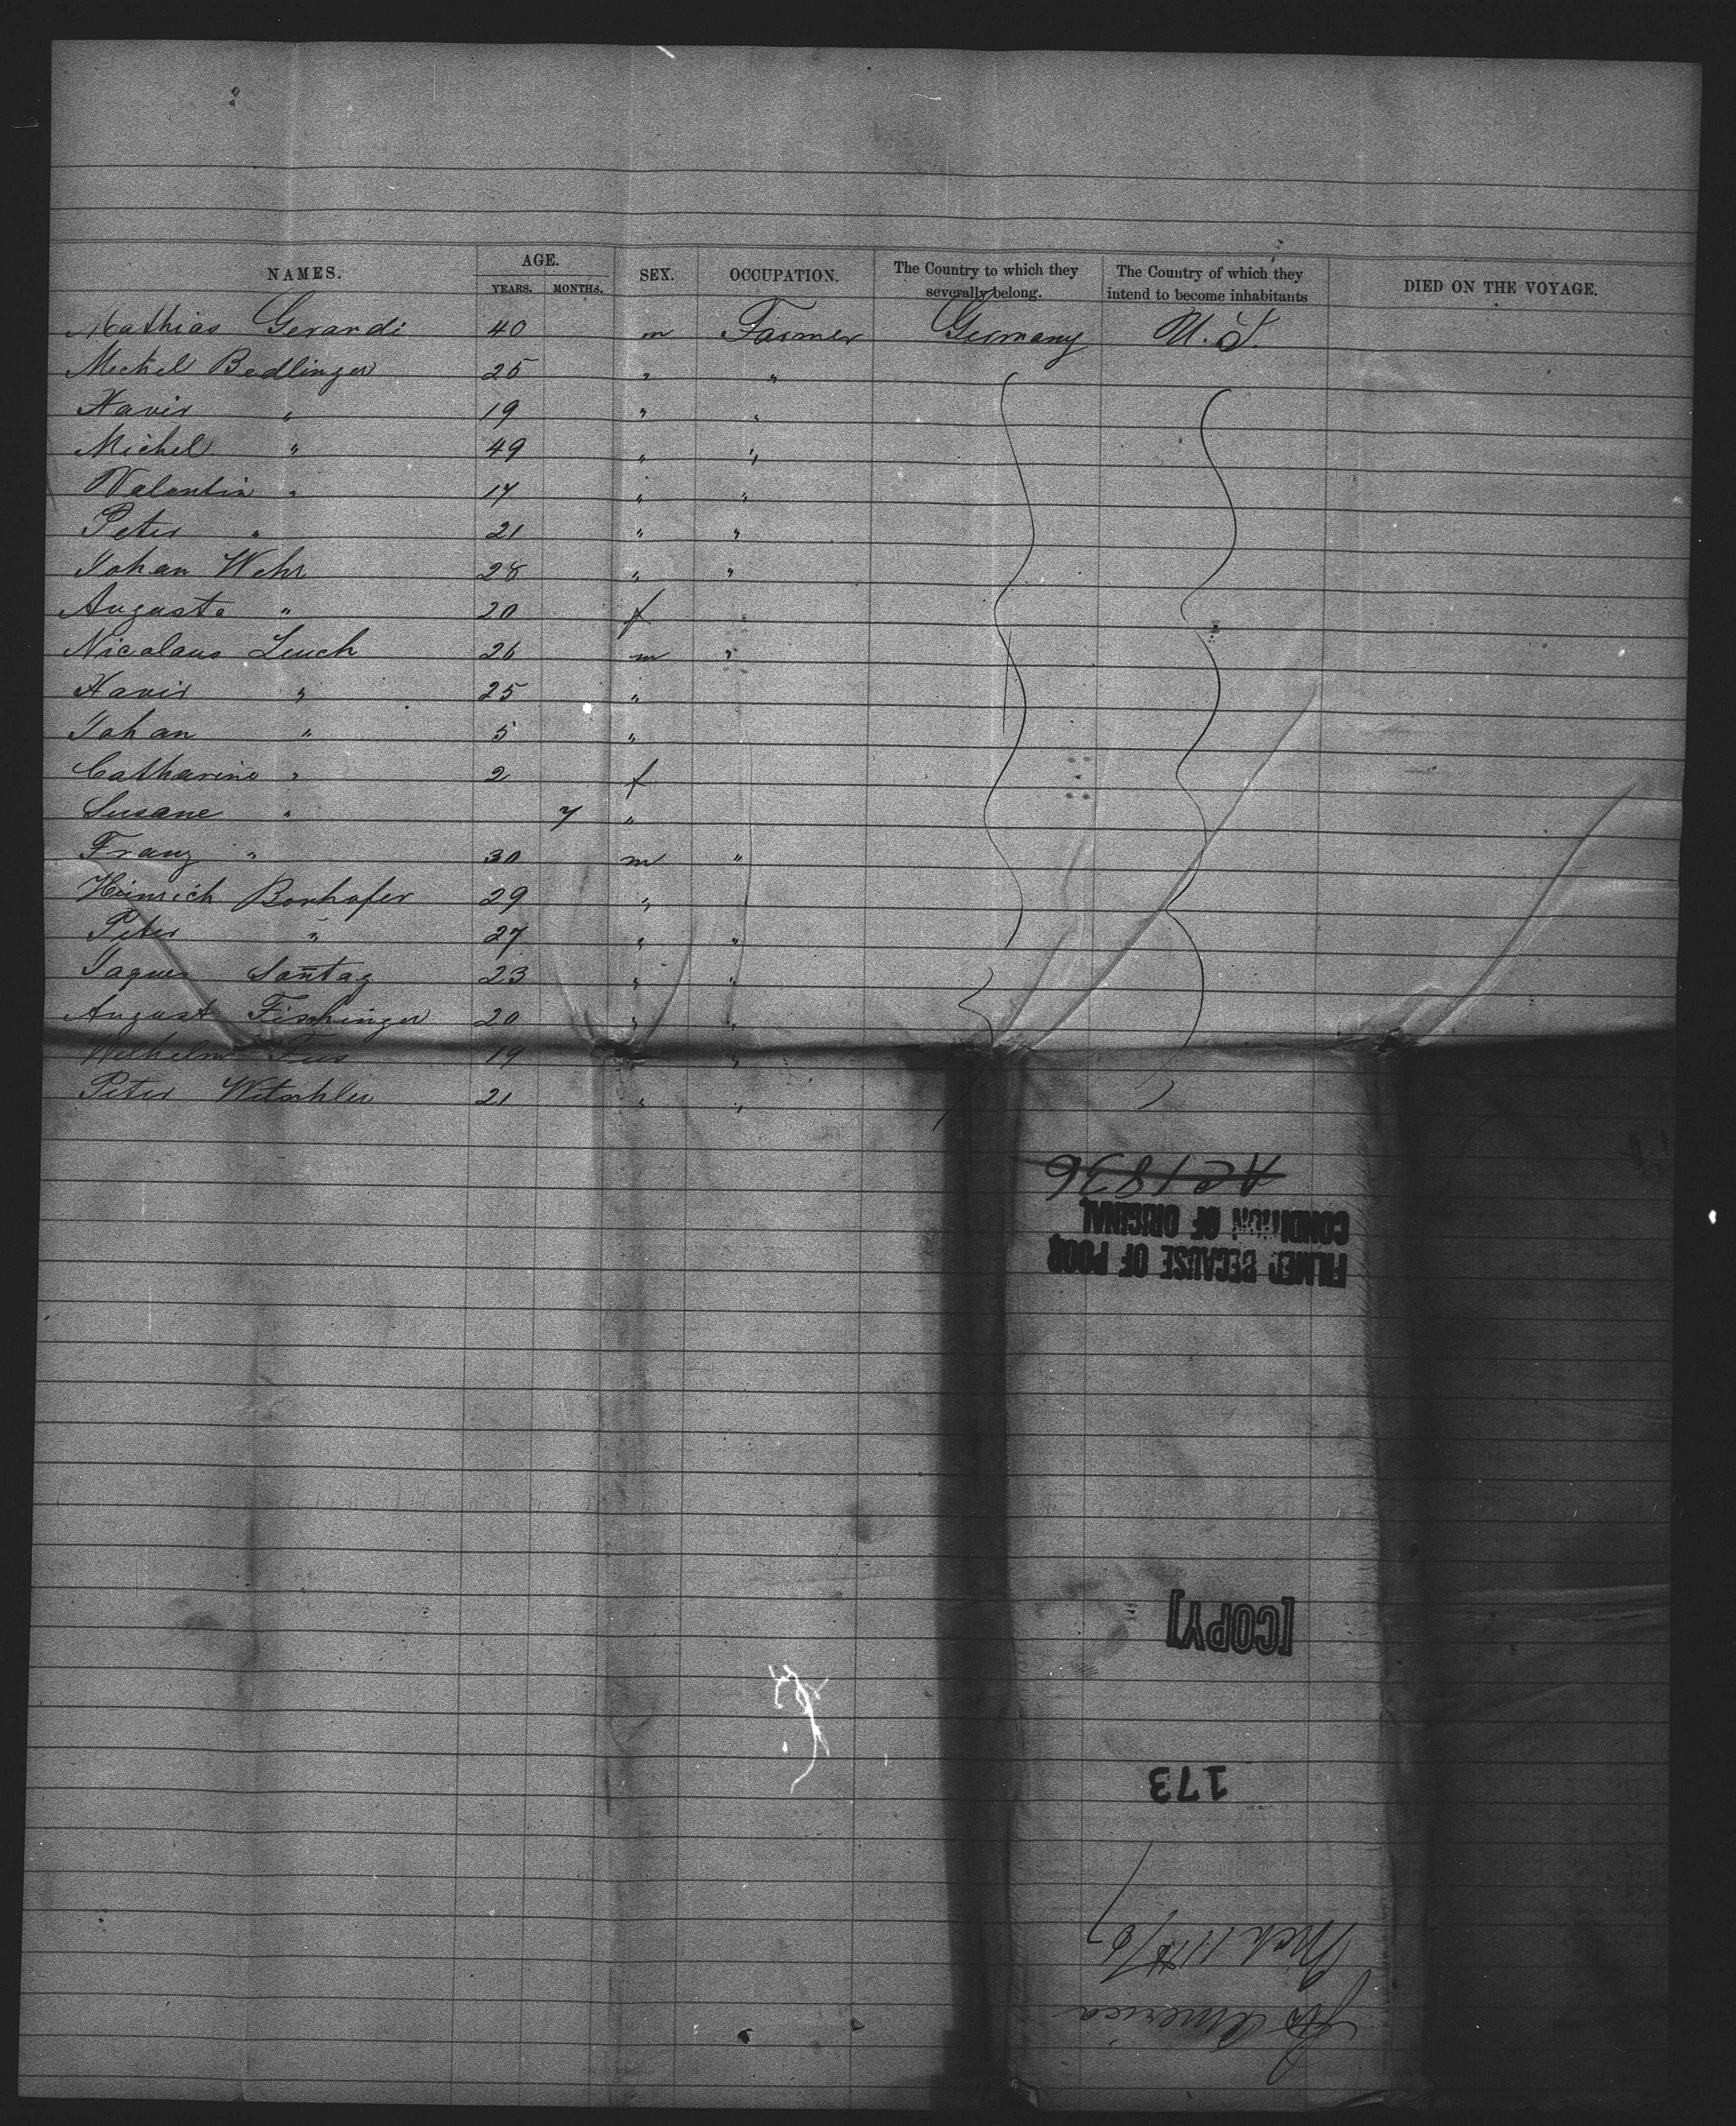 NAMES. AGE. YEARS. MONTHS. SEX. OCCUPATION. The Country to which they severally belong. The Country of which they intend to become inhabitants DIED ON THE VOYAGE.
Mathias Gerardi 40 m Farmer Germany U.S.
Michel Bedlinger 25 " "
Xavir " 19 " "
Michel " 49 " "
Valentin " 17 " "
Peter " 21 " "
Johan Wehr 28 " "
Augusta " 20 f
Nicolaus Leuch 26 m "
Xavir " 25 "
Johan " 5 "
Catharine " 2 f
Susane " 7 "
Franz " 30 m "
Heinrich Borhofer 29 "
Peter " 27 " "
Jaques Sontag 23 " "
August Fischinger 20 " "
Wilhelm 19 "
Peter Witschler 21 " "
SS America
Mch 11th/67
173
[COPY]
FILMED BECAUSE OF POOR
CONDITION OF ORIGINAL